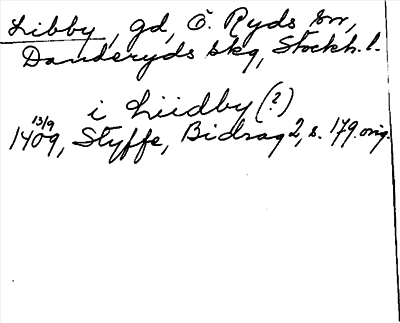 Libby, gd, Ö. Ryds sn,
Danderyds skg, Stockh. l.
i Liidby (?)
13/9 1409, Styffe, Bidrag 2, s. 179. orig.